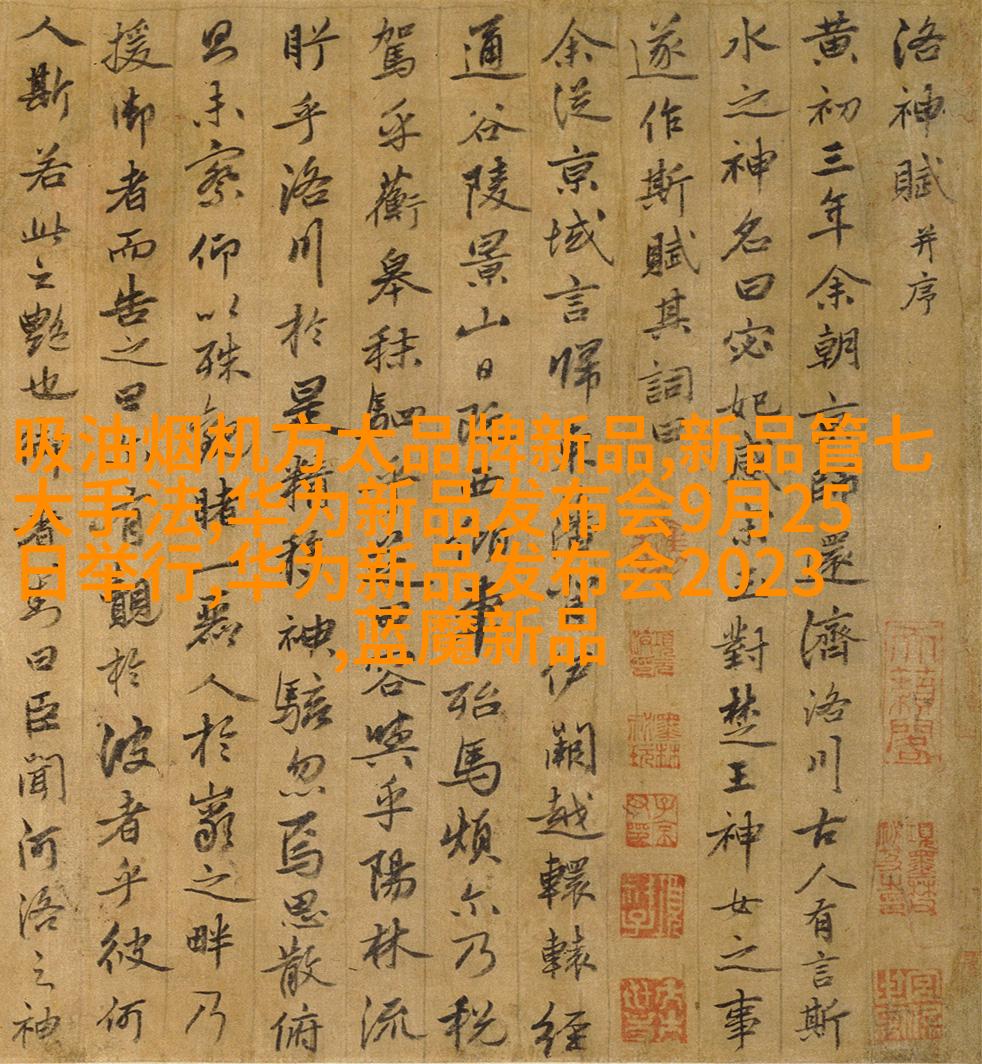 洛神賦并序
黄初三年余朝京師還濟洛川古人有言斯
水之神名曰宓妃感宋玉對楚王神女之事
遂作斯賦其詞曰
余從京域言歸東藩背伊闕越轘轅經
通谷陵景山日既西傾車殆馬煩尒乃税
駕乎蘅皋秣駟乎芝田容與乎陽林流
眄乎洛川於是精移神駭忽焉思散俯
則未察仰以殊觀睹一麗人於巖之畔乃
援御者而告之曰尒有覿於彼者乎彼何
人斯若此之艷也御者對曰臣聞河洛之神
吸油烟机方太品牌新品,新品管七
大手法,华为新品发布会9月25
日举行,华为新品发布会2023
,蓝魔新品